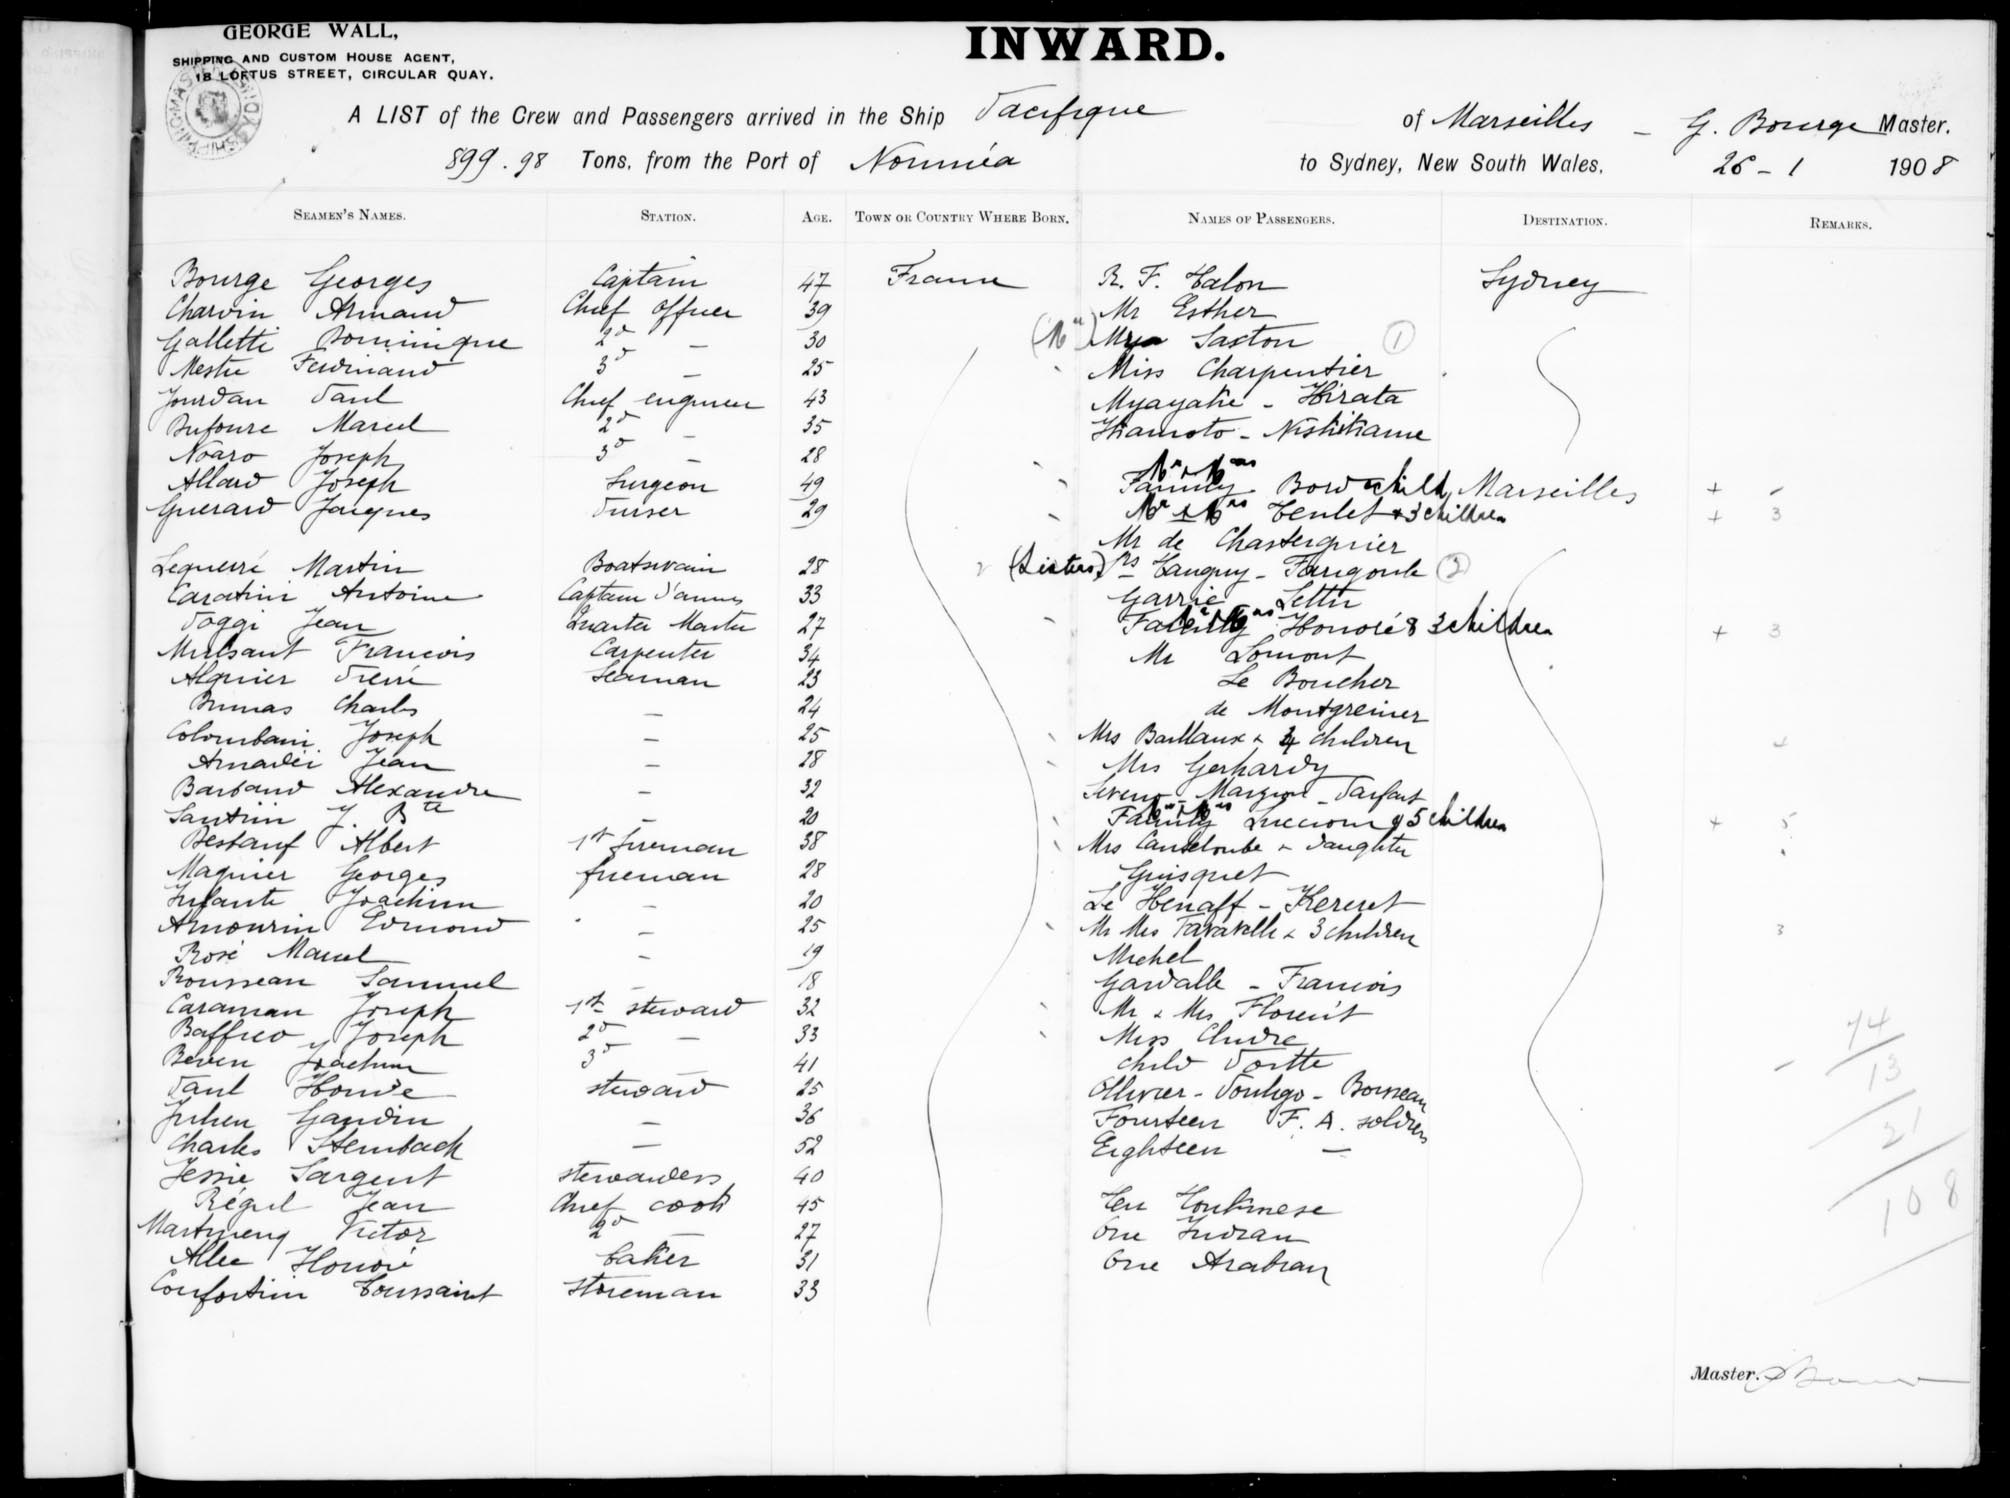 GEORGE WALL,
SHIPPING AND CUSTOM HOUSE AGENT,
18 LOFTUS STREET, CIRCULAR QUAY.
INWARD.
A LIST of the Crew and Passengers arrived in the Ship Pacifique of Marseilles - G. Bourge Master.
899.98 Tons, from the Port of Nouméa to Sydney, New South Wales, 26 - 1 1908
SEAMEN'S NAMES. STATION. AGE. TOWN OR COUNTRY WHERE BORN. NAMES OF PASSENGERS. DESTINATION. REMARKS.
Bourge Georges Captain 47 France
Charvin Armand Chief Officer 39
Galletti Dominique 2d - 30
Mestre Ferdinand 3d - 25
Jourdan Paul Chief engineer 43
Dufoure Marcel 2d - 35
Noaro Joseph 3d - 28
Allard Joseph Surgeon 49
Guerard Jacques Purser 29
Lequerré Martin Boatswain 28
Caratini Antoine Captain d'armes 33
Poggi Jean Quarter Master 27
Mulsant Francois Carpenter 34
Alquier Pierre Seaman 23
Dumas Charles - 24
Colombani Joseph - 25
Amadéi Jean - 28
Barbaud Alexandre - 32
Santini J. Bte - 20
Destauf Albert 1st fireman 38
Magnier Georges fireman 28
Infante Joachim - 20
Amourin Edmond - 25
Rosé Marcel - 19
Rousseau Samuel - 18
Caraman Joseph 1st steward 32
Baffreo Joseph 2d - 33
Beven Joachim 3d - 41
Paul Honde steward 25
Julien Gaudin - 36
Charles Steinback - 52
Jessie Sargent stewardess 40
Régul Jean Chief cook 45
Martineng Victor 2d 27
Allee Honoré baker 31
Confortini Toussaint storeman 33
R. F. Talon Sydney
Mr Esther
(Mr) Saxton 1
Miss Charpentier
Myayake - Hirata
Nishikame
Mr & Mrs Family Bord child Marseilles + -
Mr & Mrs Teulet + 3 children + 3
Mr de Chastergnier
(Sisters) Tanguy - Farigoule 2
Garrie Lettu
Family Mr & Mrs Honoré & 3 children + 3
Mr Lomont
Le Boucher
de Montgremier
Mrs Baillaux & 4 children 4
Mrs Gerhardy
Parfait
Family Mr & Mrs Luccioni & 5 children + 5
Mrs Canteloube & daughter
Guisquet
Le Henaff - Kereret
Mr Mrs Favarelle & 3 children 3
Michel
Gardalle - Francois
Mr & Mrs Florent
Miss Andre
child -
Ollivier -
Fourteen F. A. soldiers
Eighteen -
Ten Tonkinese
One Indian
One Arabian
74
13
21
108
Master.